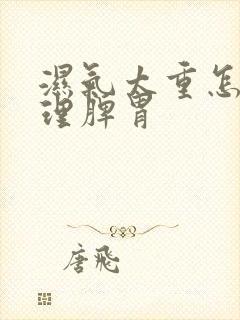 濕氣太重怎
理脾胃
唐飛